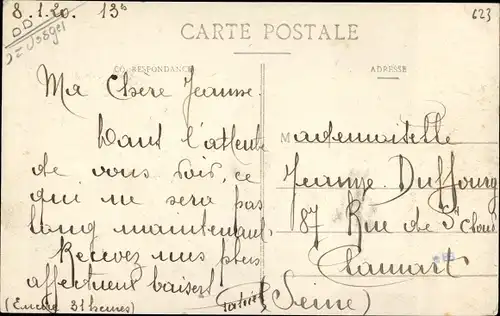 8.1.20. 13h
623
Vosges
CARTE POSTALE
CORRESPONDANCE
ADRESSE
Ma Chère Jeanne.
Dans l'attente
de vous voir, ce
qui ne sera pas
long maintenant.
Recevez mes plus
affectueux baisers
(Encore 31 heures)
Mademoiselle
Jeanne Duffourg
87 Rue de St Cloud
Clamart
(Seine)